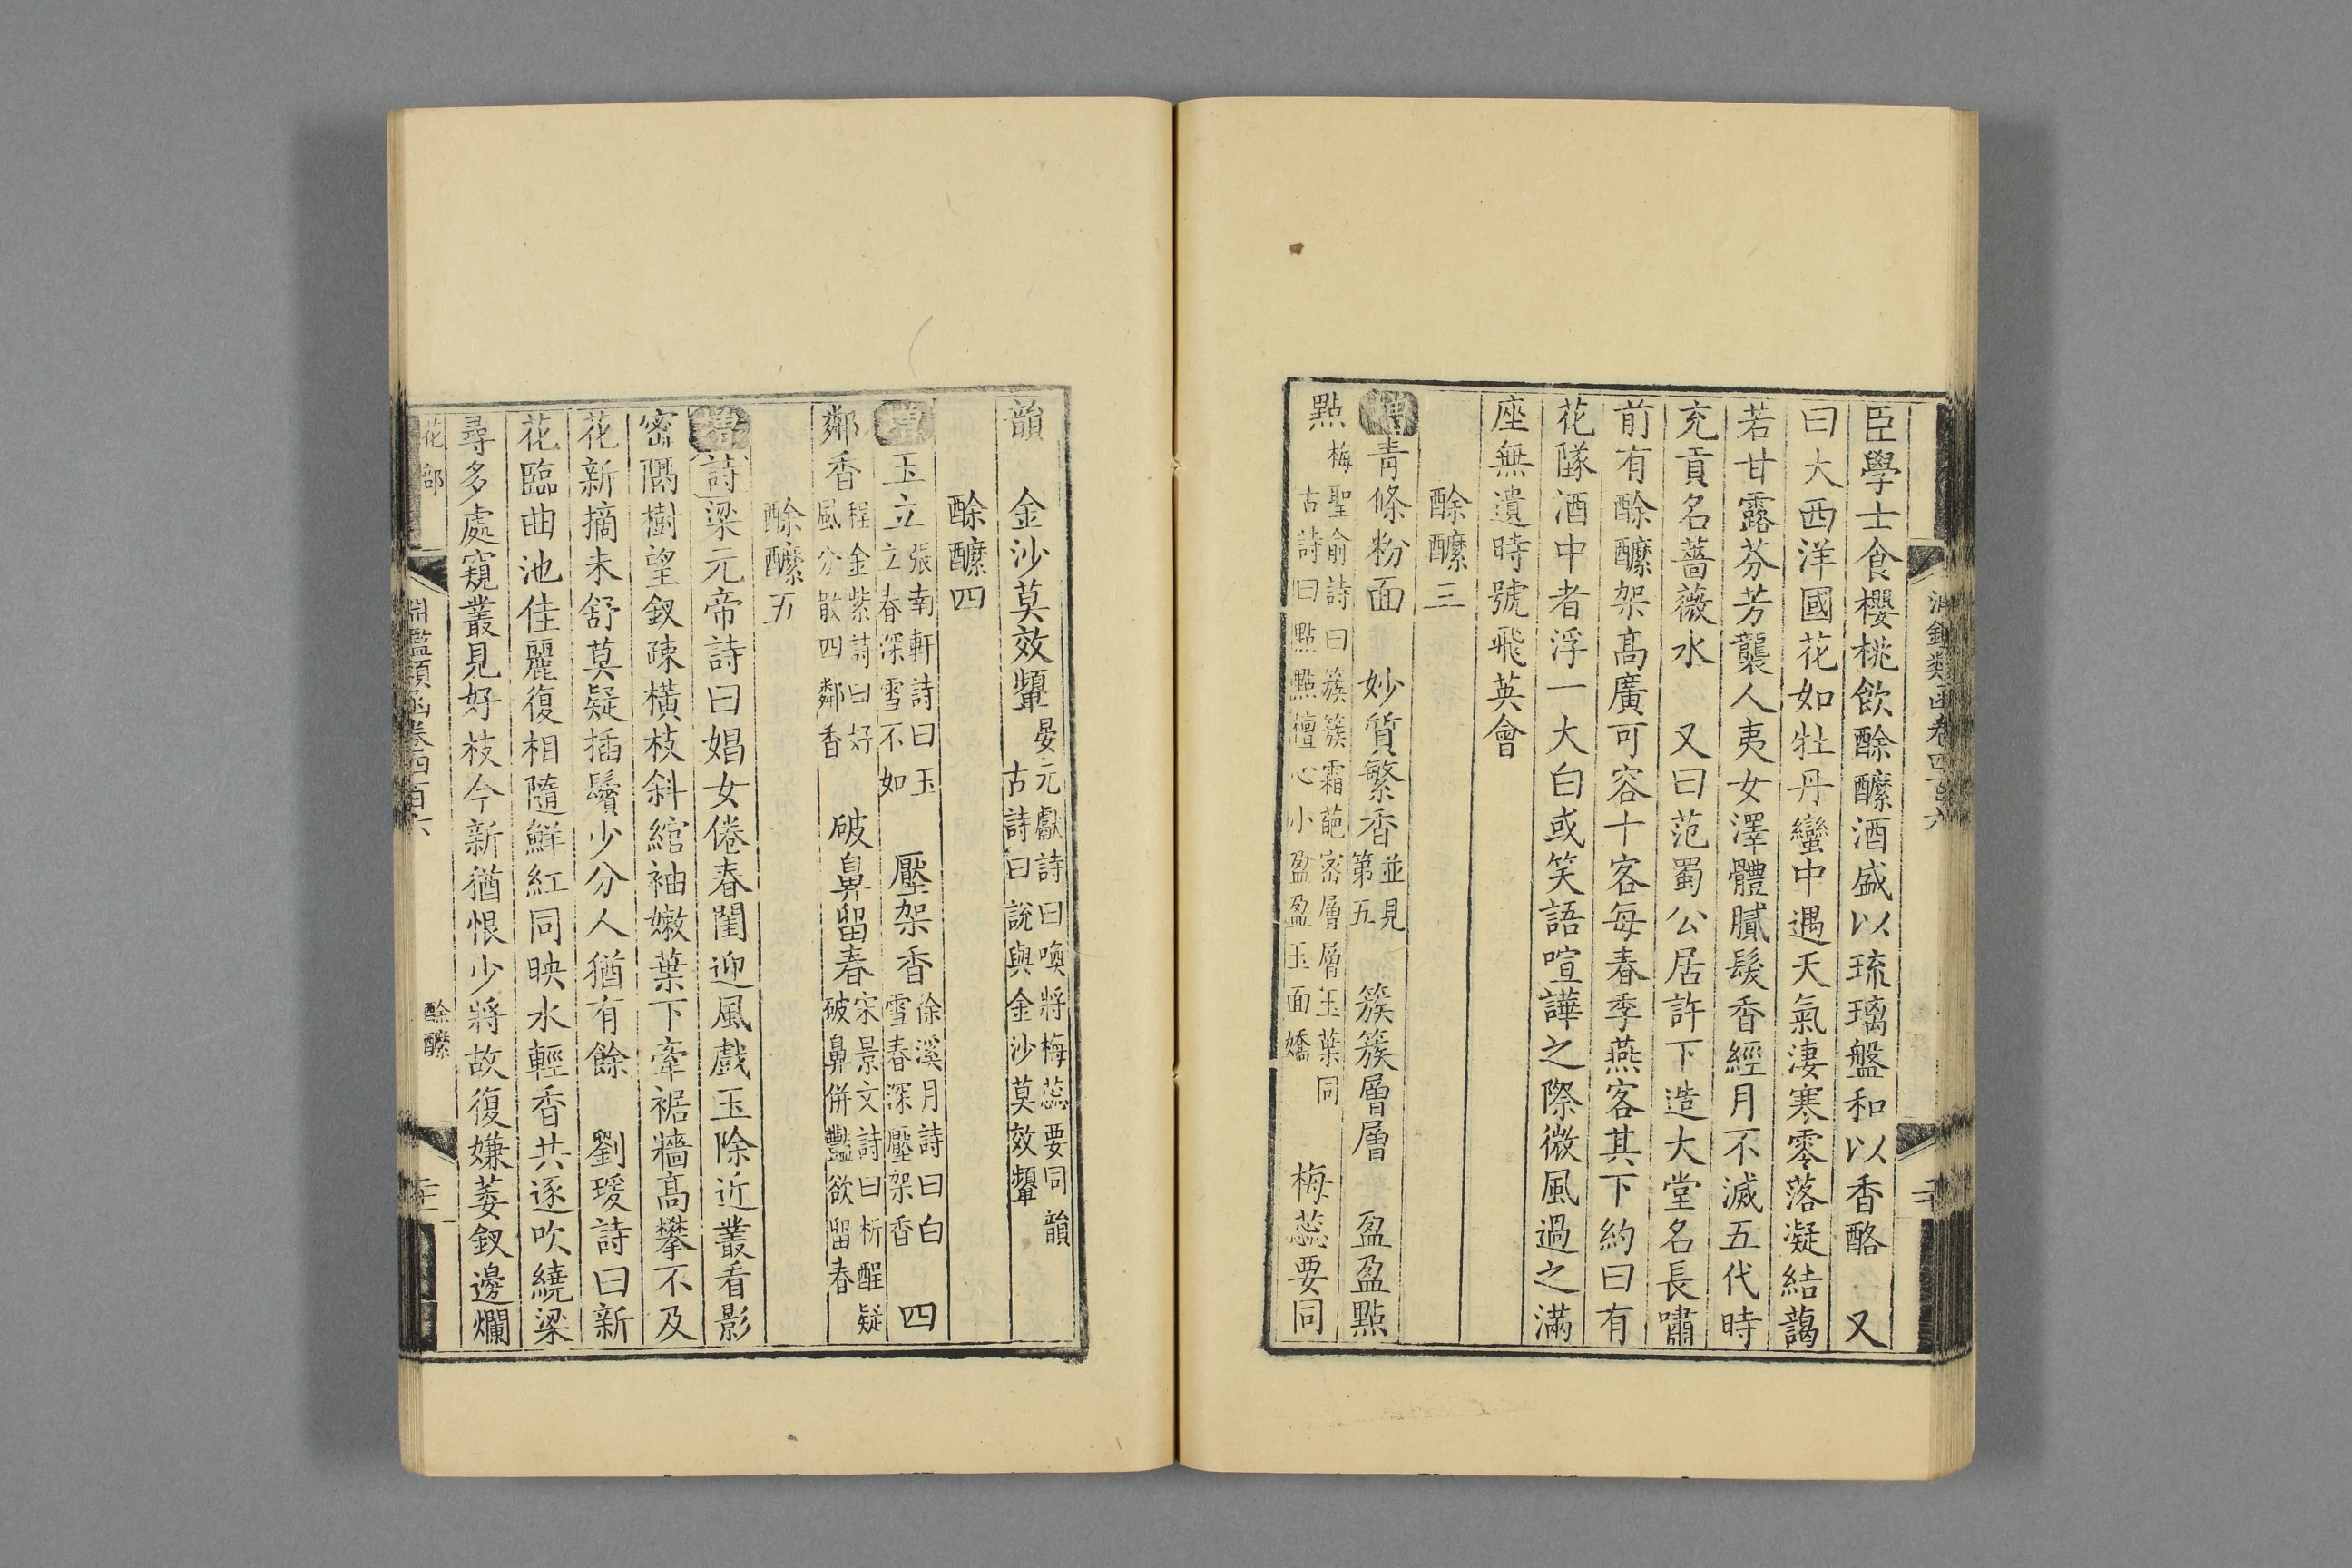 臣學士食櫻桃飲酴醾酒盛以琉璃盤和以香酪　又
曰大西洋國花如牡丹蠻中遇天氣淒寒零落凝結藹
若甘露芬芳襲人夷女澤體膩髮香經月不滅五代時
充貢名薔薇水　又曰范蜀公居許下造大堂名長嘯
前有酴醾架高廣可容十客每春季燕客其下約曰有
花墜酒中者浮一大白或笑語喧譁之際微風過之滿
座無遺時號飛英會
酴醾三
青條粉面　妙質繁香並見第五　簇簇層層　盈盈點
點梅聖俞詩曰簇簇霜葩密層層玉葉同古詩曰點點檀心小盈盈玉面嬌　梅蕊要同
韻　金沙莫效顰晏元獻詩曰喚將梅蕊要同韻古詩曰說與金沙莫效顰
酴醾四
玉立張南軒詩曰玉立春深雪不如　壓架香徐溪月詩曰白雪春深壓架香　四
鄰香程金紫詩曰好風分散四鄰香　破鼻留春宋景文詩曰析酲疑破鼻併豔欲留春
酴醾五
詩梁元帝詩曰娼女倦春閨迎風戲玉除近叢看影
密隔樹望釵疎橫枝斜綰袖嫩葉下牽裾牆高攀不及
花新摘未舒莫疑插鬢少分人猶有餘　劉瑗詩曰新
花臨曲池佳麗復相隨鮮紅同映水輕香共逐吹繞梁
尋多處窺叢見好枝今新猶恨少將故復嫌萎釵邊爛
花部　淵鑑類函卷四百六　酴醾